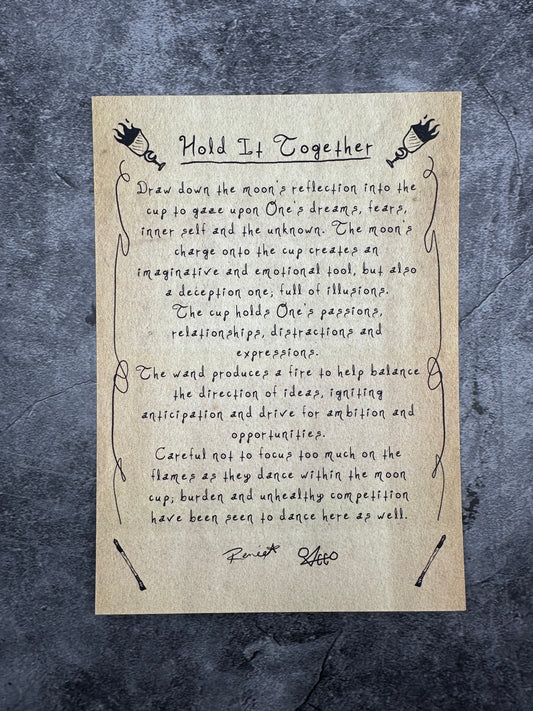 Hold It Together
Draw down the moon's reflection into the
cup to gaze upon One's dreams, fears,
inner self and the unknown. The moon's
charge onto the cup creates an
imaginative and emotional tool, but also
a deception one; full of illusions.
The cup holds One's passions,
relationships, distractions and
expressions.
The wand produces a fire to help balance
the direction of ideas, igniting
anticipation and drive for ambition and
opportunities.
Careful not to focus too much on the
flames as they dance within the moon
cup; burden and unhealthy competition
have been seen to dance here as well.